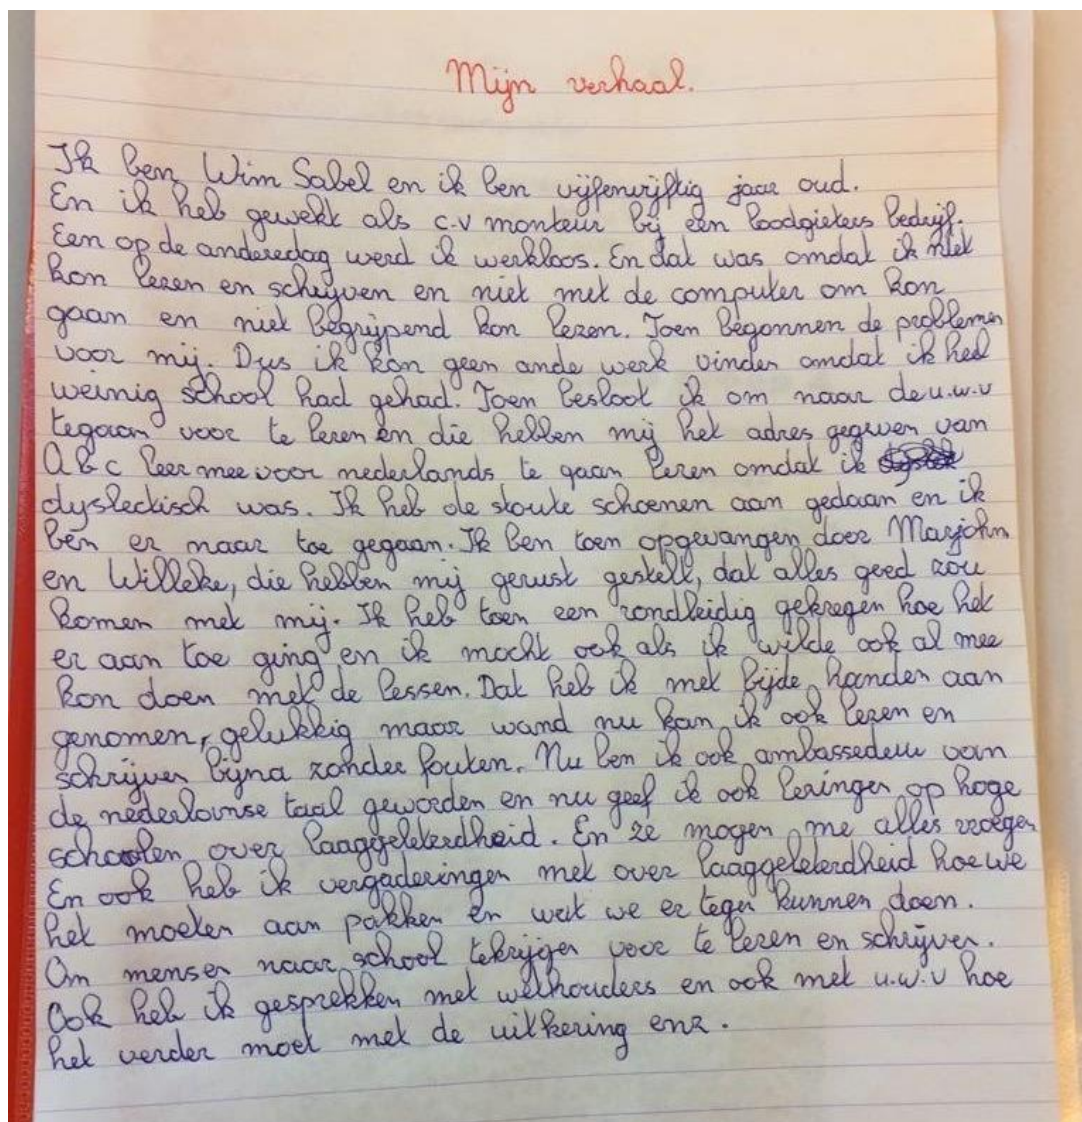 Mijn verhaal.
Ik ben Wim Sabel en ik ben vijfenvijftig jaar oud.
En ik heb gewekt als c.v monteur bij een loodgieters bedrijf.
Een op de anderedag werd ik werkloos. En dat was omdat ik niet
kon lezen en schrijven en niet met de computer om kon
gaan en niet begrijpend kon lezen. Toen begonnen de problemen
voor mij. Dus ik kon geen ande werk vinden omdat ik heel
weinig school had gehad. Toen besloot ik om naar de u.w.v
tegaan voor te leren en die hebben mij het adres gegeven van
ABC leer mee voor nederlands te gaan leren omdat ik
dysleckisch was. Ik heb de stoute schoenen aan gedaan en ik
ben er naar toe gegaan. Ik ben toen opgevangen door Marjohn
en Willeke, die hebben mij gerust gestelt, dat alles goed zou
komen met mij. Ik heb toen een rondleidig gekregen hoe het
er aan toe ging en ik mocht ook als ik wilde ook al mee
kon doen met de lessen. Dat heb ik met bijde handen aan
genomen, gelukkig maar wand nu kan ik ook lezen en
schrijven bijna zonder fouten. Nu ben ik ook ambassedeur van
de nederlanse taal geworden en nu geef ik ook lezingen op hoge
schoolen over laaggeletterdheid. En ze mogen me alles vroegen
En ook heb ik vergaderingen met over laaggeleterdheid hoe we
het moeten aan pakken en wat we er tegen kunnen doen.
Om mensen naar school tekrijgen voor te lezen en schrijven.
Ook heb ik gesprekken met wethouders en ook met u.w.v hoe
het verder moet met de uitkering enz.